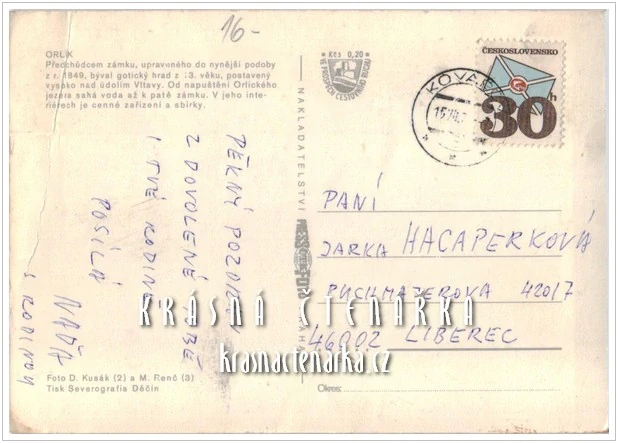 16-
ORLÍK
Předchůdcem zámku, upraveného do nynější podoby
z r. 1849, býval gotický hrad z 13. věku, postavený
vysoko nad údolím Vltavy. Od napuštění Orlického
jezera sahá voda až k patě zámku. V jeho inte-
riérech je cenné zařízení a sbírky.
Kčs 0,20
VE PROSPĚCH CESTOVNÍHO RUCHU
ČESKOSLOVENSKO
30h
KOVA
15.VII.
PĚKNÝ POZDRAV
Z DOVOLENÉ TOBĚ
I TVÉ RODINĚ
POSÍLÁ
NAĎA
S RODINOU
NAKLADATELSTVÍ
PRESSFOTO
PRAHA
PANÍ
JARKA HACAPERKOVÁ
PUCHMAJEROVA 420/7
46002 LIBEREC
KRÁSNÁ ČTENÁŘKA
krasnactenarka.cz
Foto D. Kusák (2) a M. Renč (3)
Tisk Severografia Děčín
Okres: